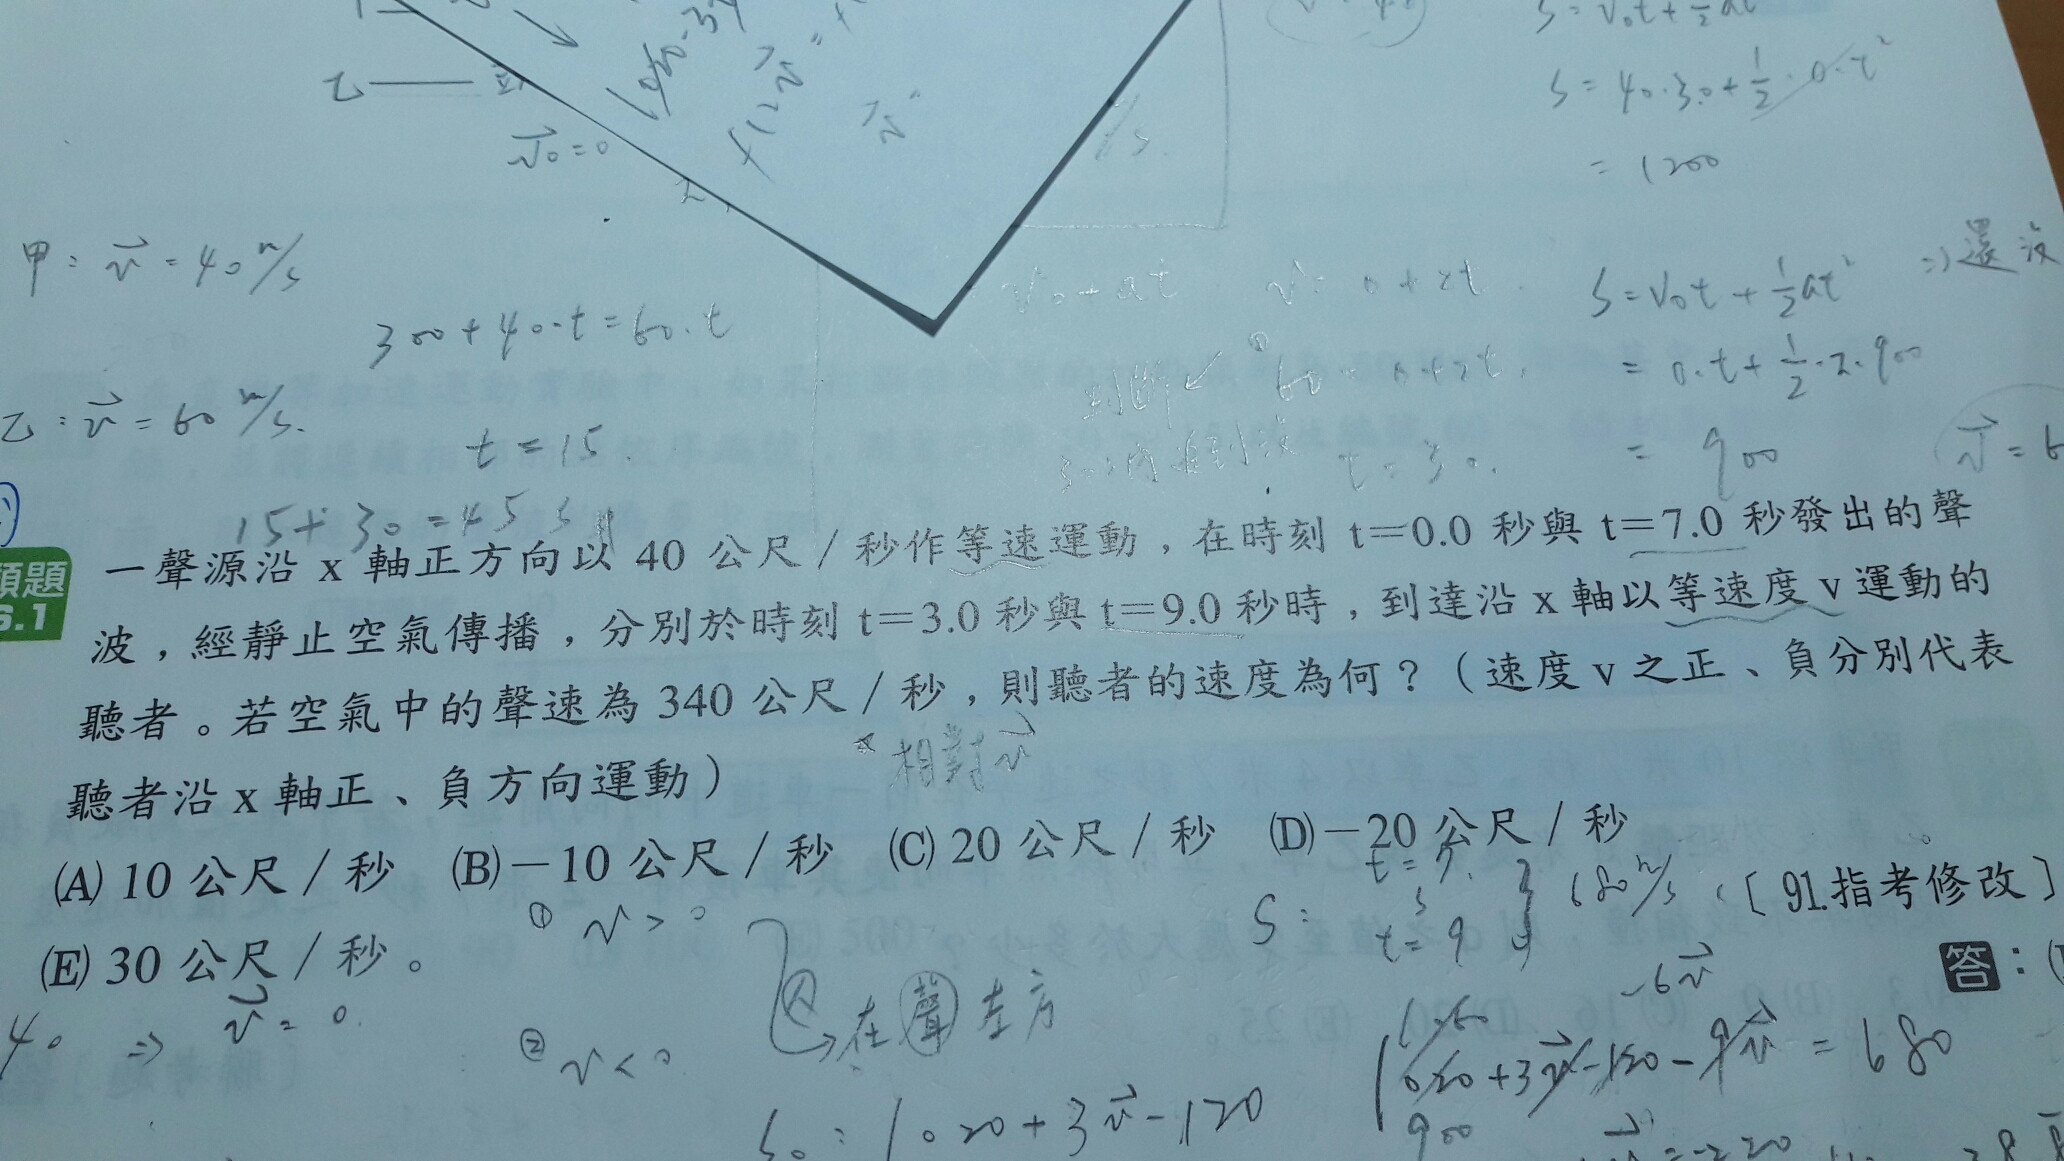 S = V₀t + ½at²
S = 40·30 + ½·0·t²
= 1200
乙
V⃗₀ = 0
甲 : v⃗ = 40 m/s
300 + 40·t = 60·t
V₀ + at
v = 0 + 2t
S = V₀t + ½at²
⇒ 還沒
60 = 0 + 2t
= 0·t + ½·2·900
乙 : v⃗ = 60 m/s.
t = 15.
t = 30.
= 900
15 + 30 = 45 s
類題
6.1
一聲源沿 x 軸正方向以 40 公尺/秒作等速運動,在時刻 t=0.0 秒與 t=7.0 秒發出的聲
波,經靜止空氣傳播,分別於時刻 t=3.0 秒與 t=9.0 秒時,到達沿 x 軸以等速度 v 運動的
聽者。若空氣中的聲速為 340 公尺/秒,則聽者的速度為何?(速度 v 之正、負分別代表
聽者沿 x 軸正、負方向運動)
相對v⃗
(A) 10 公尺/秒 (B)-10 公尺/秒 (C) 20 公尺/秒 (D)-20 公尺/秒
(E) 30 公尺/秒。
[91.指考修改]
答:(
① v > 0
S : t = 7. t = 9 } 680 m/s
40 ⇒ v⃗ = 0.
② v < 0
在聲左方
-6v⃗
1020 + 3v⃗ - 120 - 9v⃗ = 680
900
S₀ : 1020 + 3v⃗ - 120